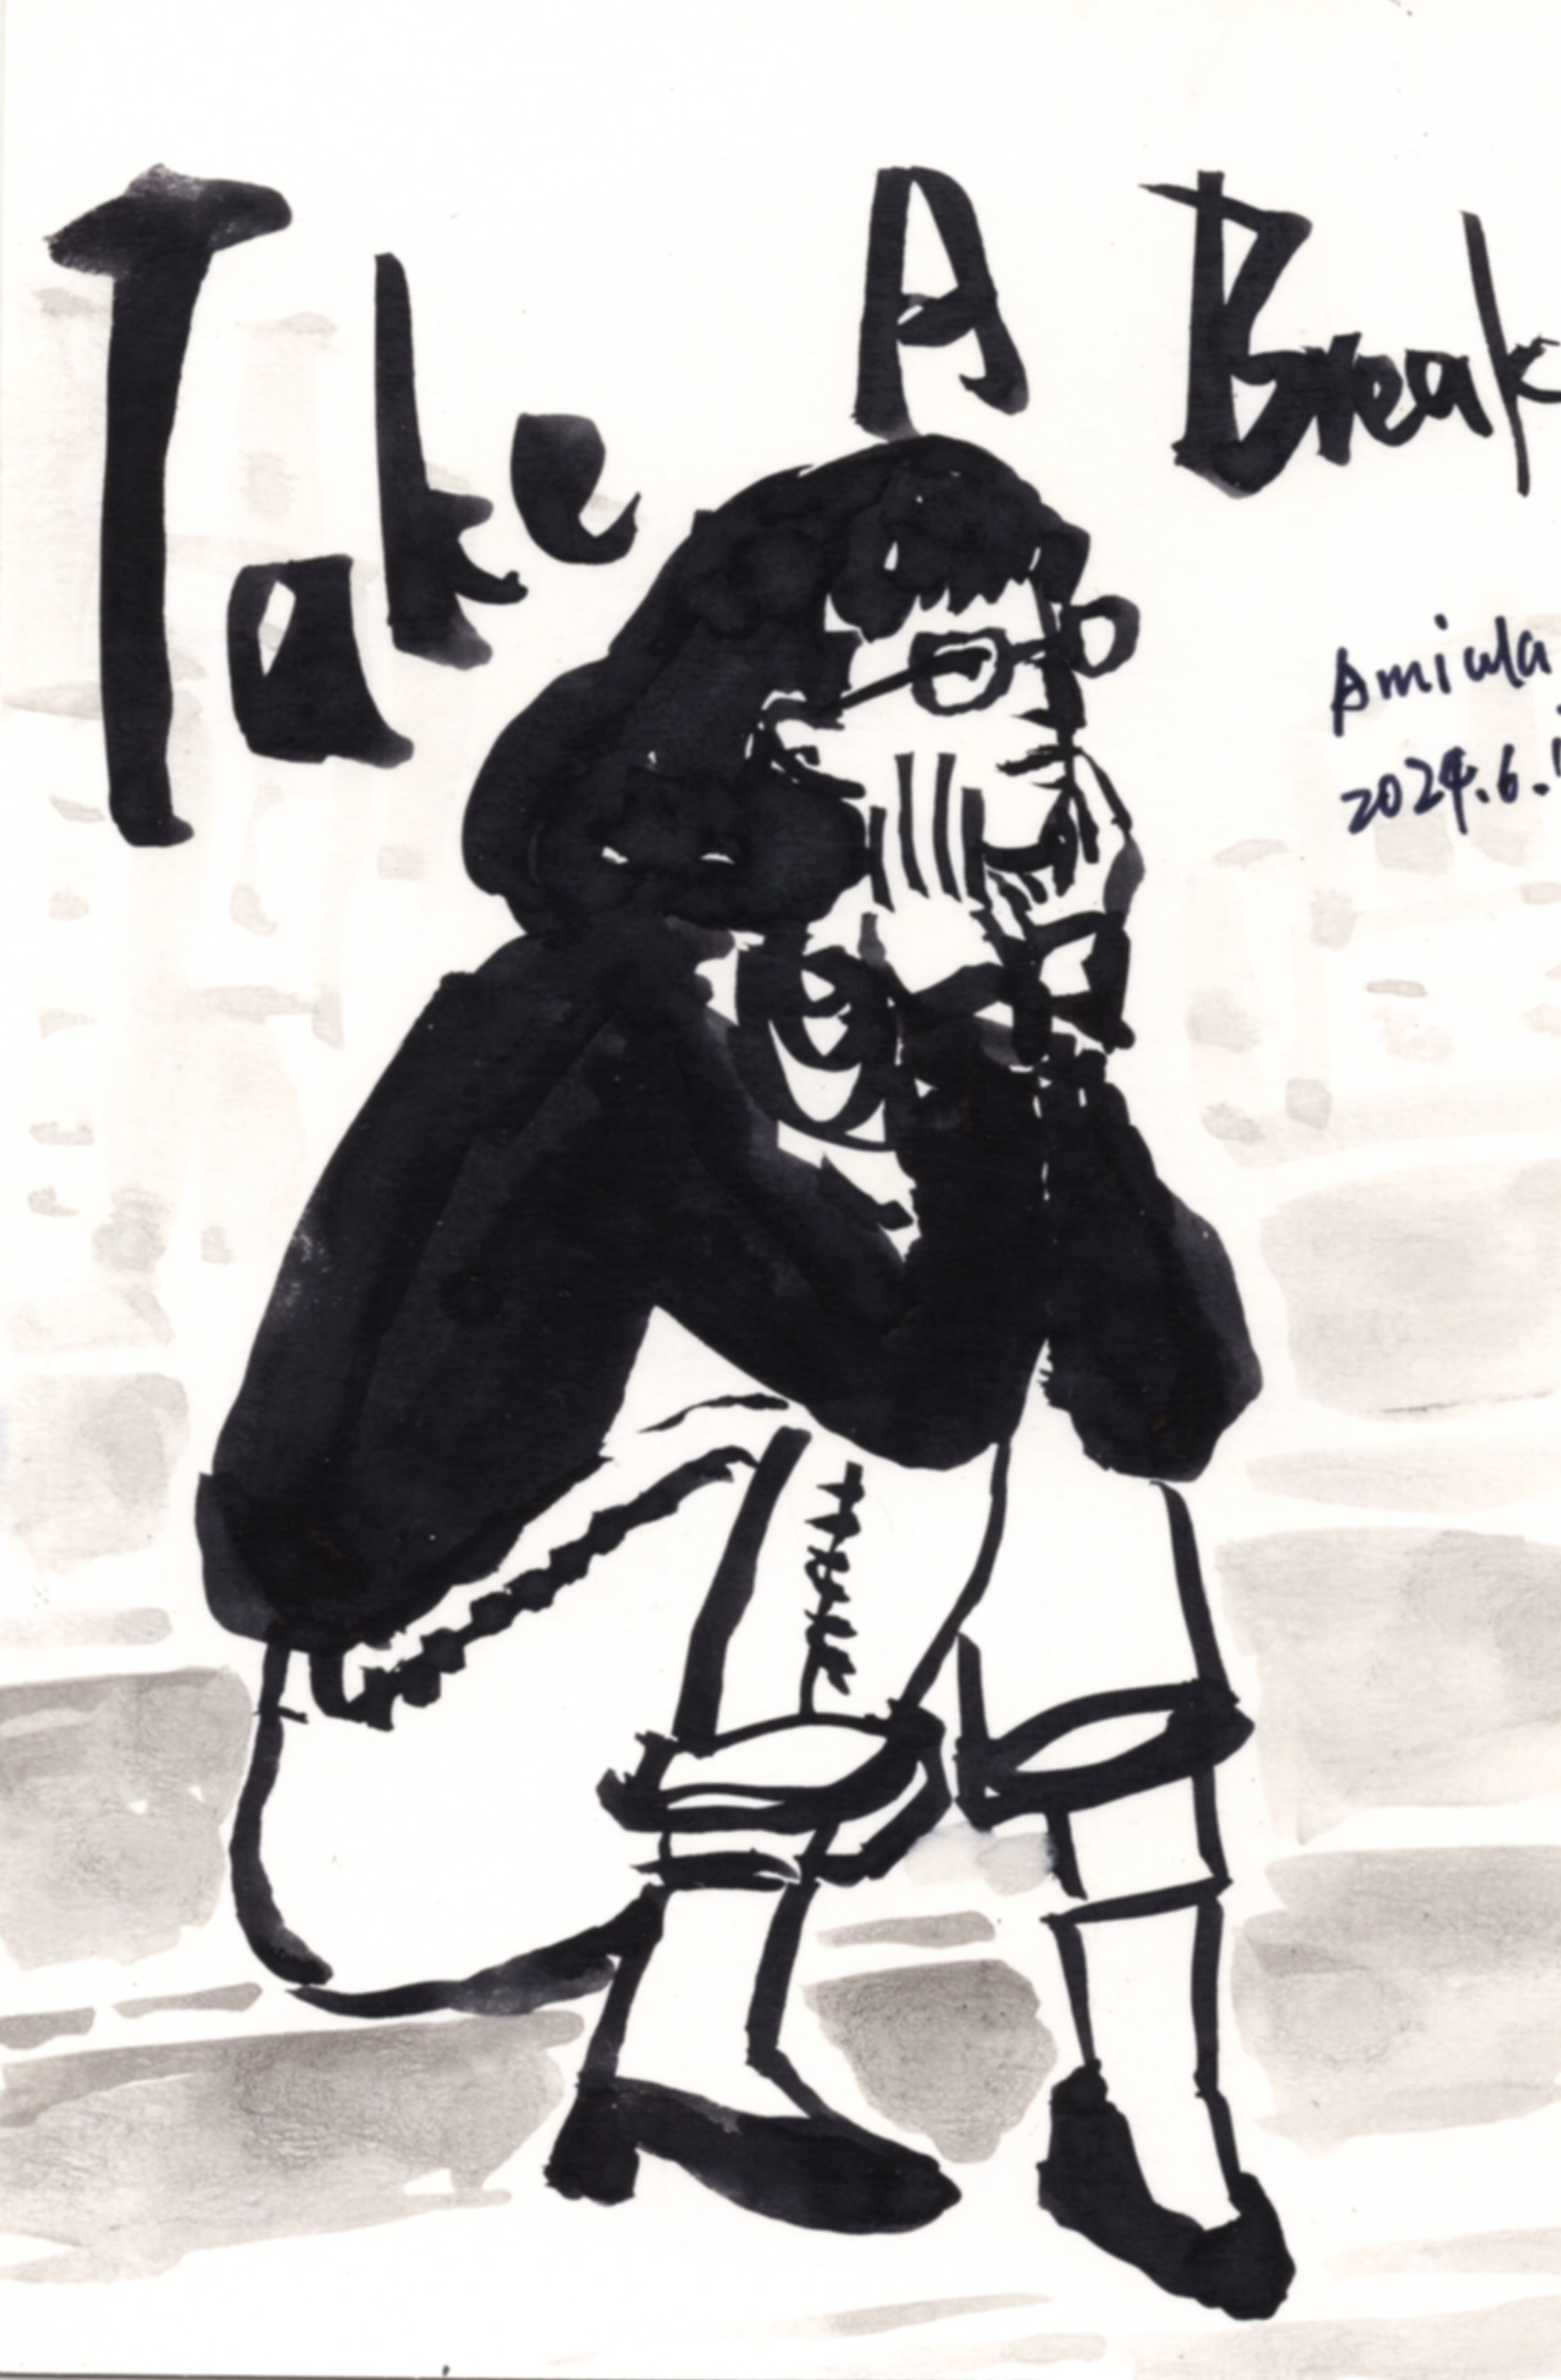 Take A Break
Amiula
2024.6.